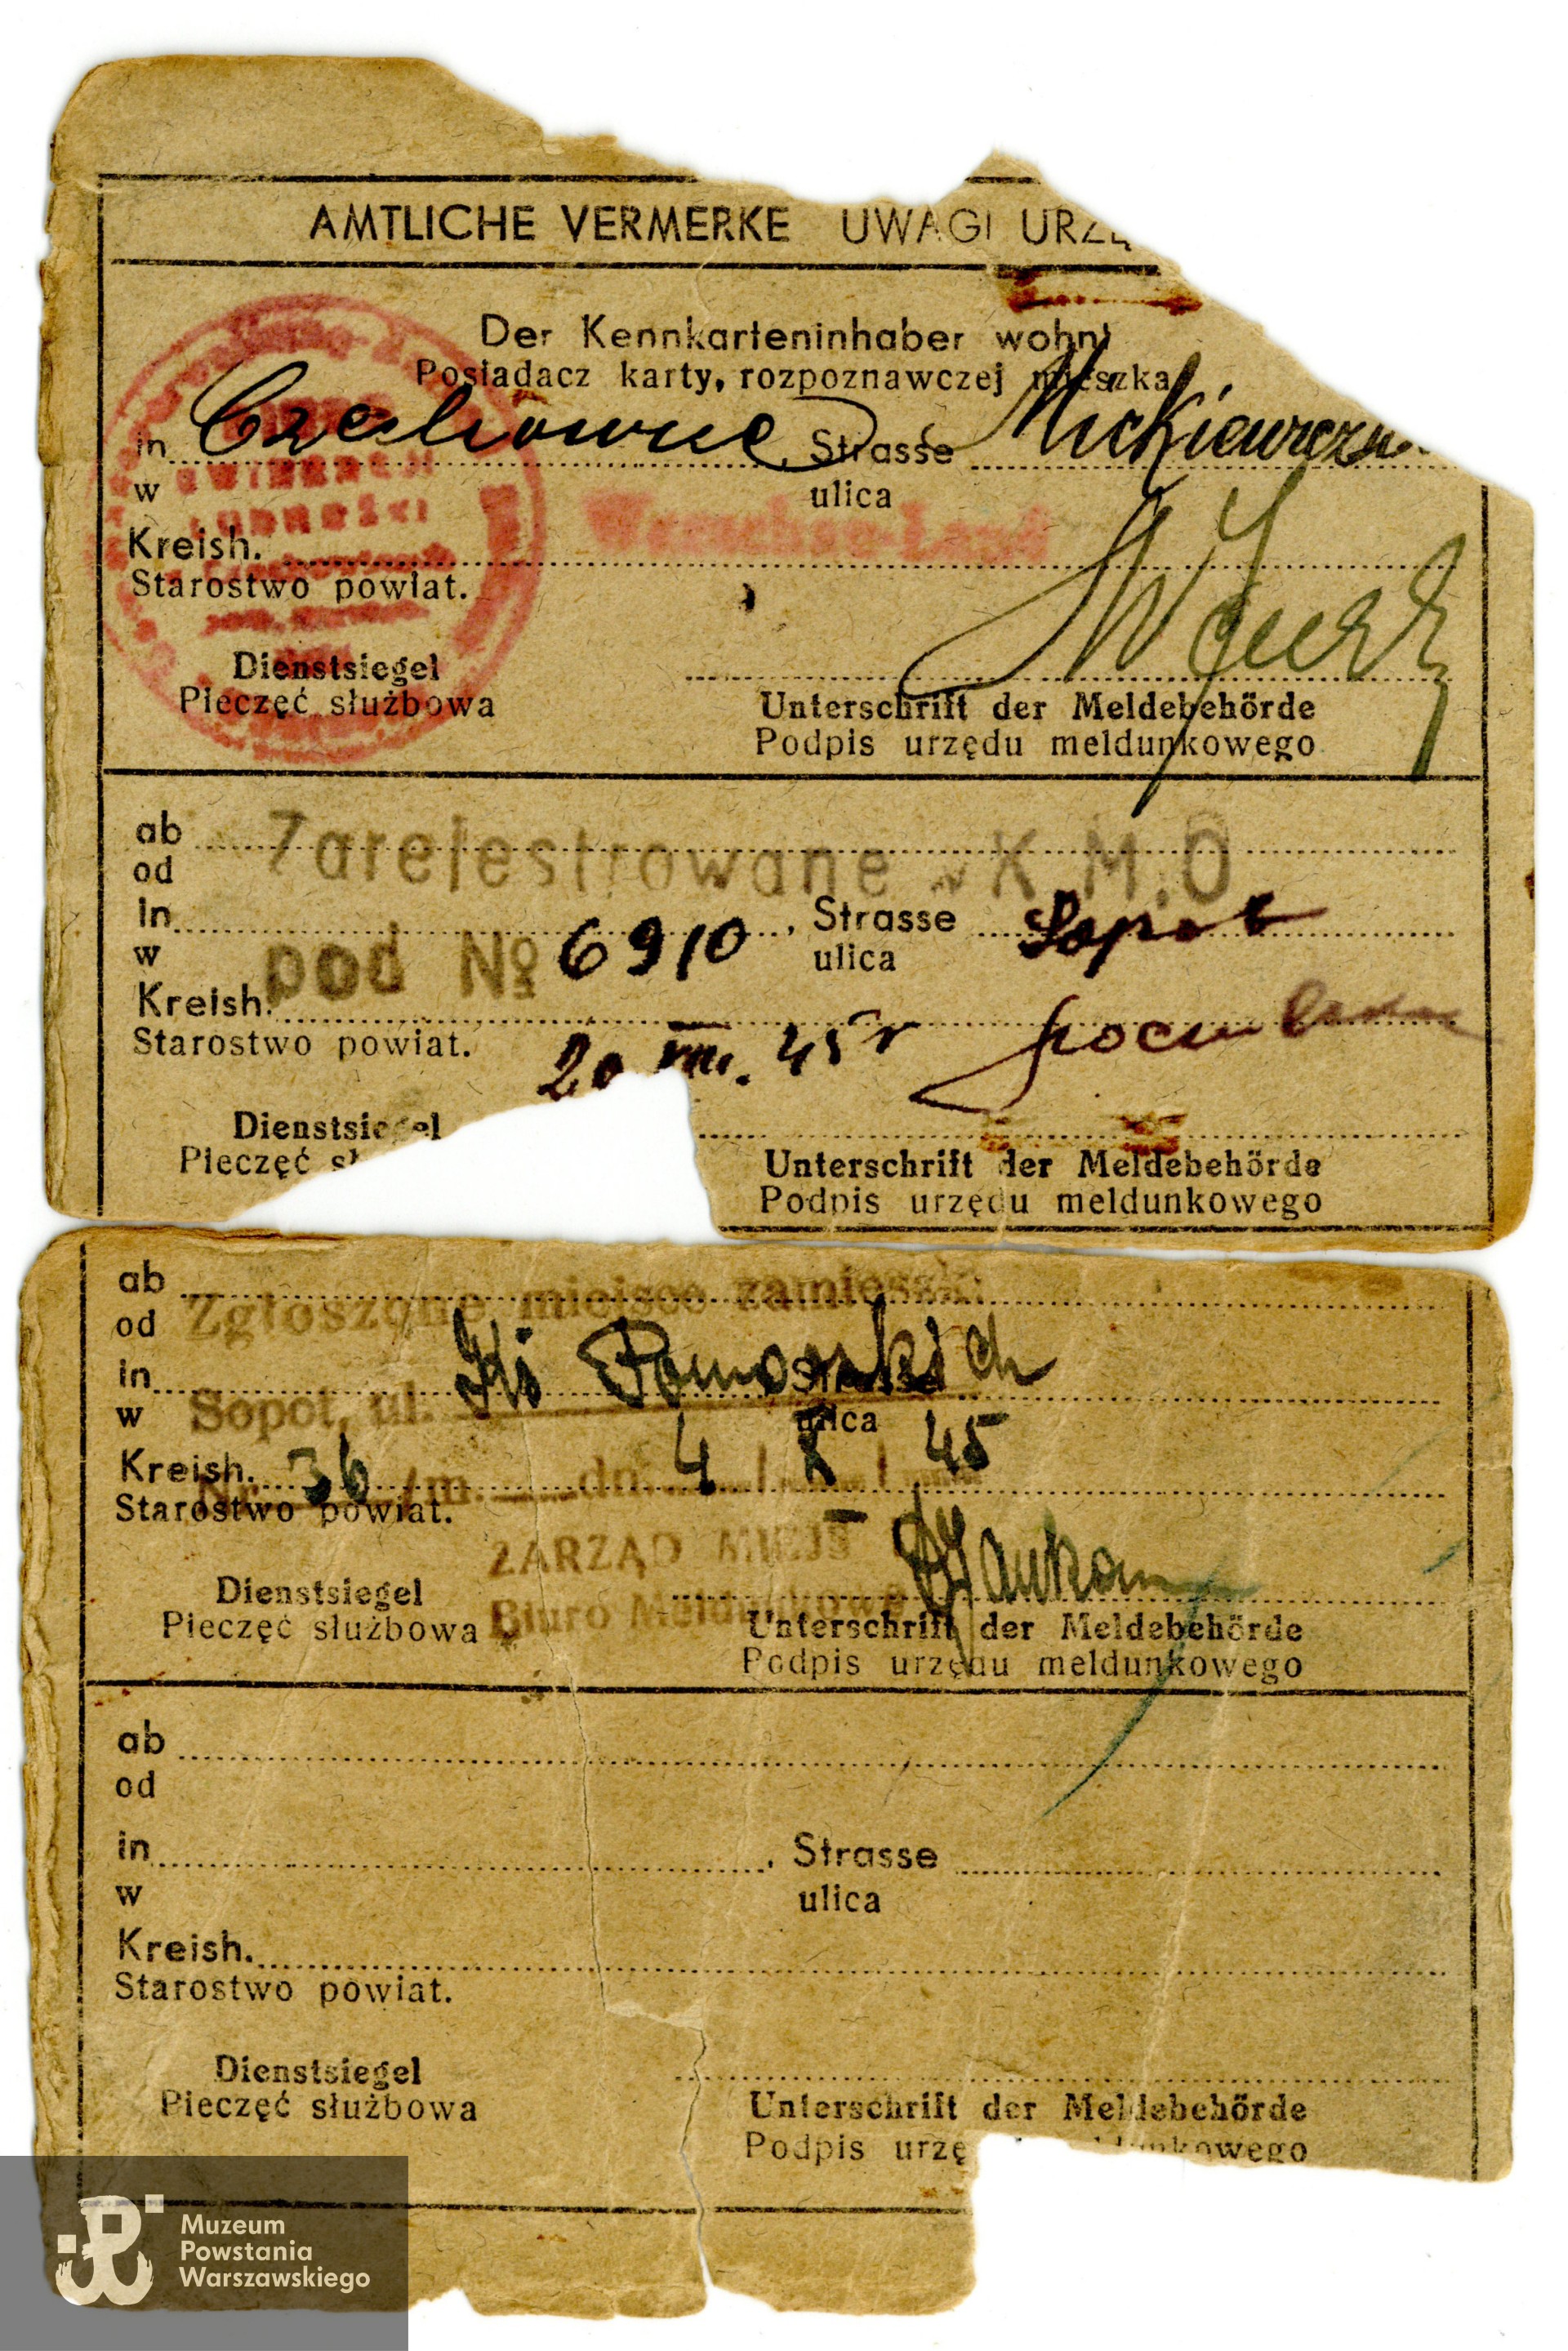 AMTLICHE VERMERKE UWAGI URZĘ
Der Kennkarteninhaber wohnt
Posiadacz karty, rozpoznawczej mieszka
in Czechowice, Strasse Mickiewicza
w ulica
Kreish. Warschau-Land
Starostwo powiat.
Dienstsiegel
Pieczęć służbowa
Unterschrift der Meldebehörde
Podpis urzędu meldunkowego
ab Zarejestrowane w K.M.O
od
in , Strasse Sopot
w pod № 6910 ulica
Kreish.
Starostwo powiat. 20 VIII. 45 r
Dienstsiegel
Pieczęć sł
Unterschrift der Meldebehörde
Podpis urzędu meldunkowego
ab Zgłoszone miejsce zamieszk.
od
in Ks Pomorskich Strasse
w Sopot, ul. ulica
Kreish. Nr. 36 /m. dn. 4 X 45
Starostwo powiat.
ZARZĄD MIEJS
Dienstsiegel
Pieczęć służbowa
Biuro Meldunkowe
Unterschrift der Meldebehörde
Podpis urzędu meldunkowego
ab
od
in , Strasse
w ulica
Kreish.
Starostwo powiat.
Dienstsiegel
Pieczęć służbowa
Unterschrift der Meldebehörde
Podpis urzę ldunkowego
Muzeum
Powstania
Warszawskiego